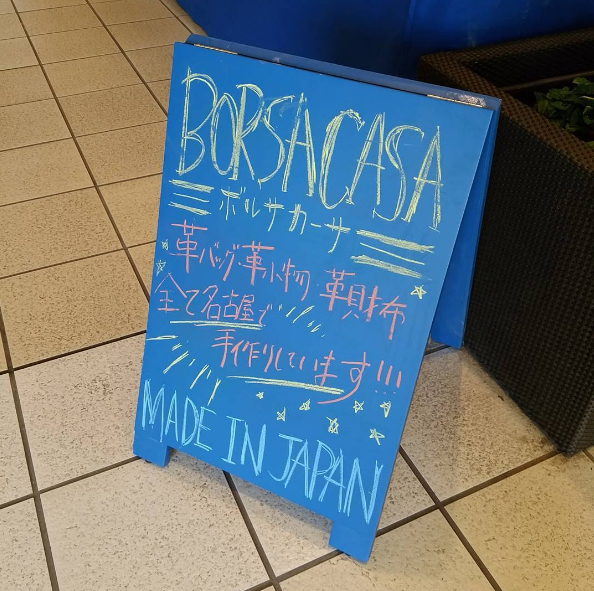 BORSACASA
ボルサカーサ
革バッグ・革小物・革財布
全て名古屋で
手作りしています!!!
MADE IN JAPAN